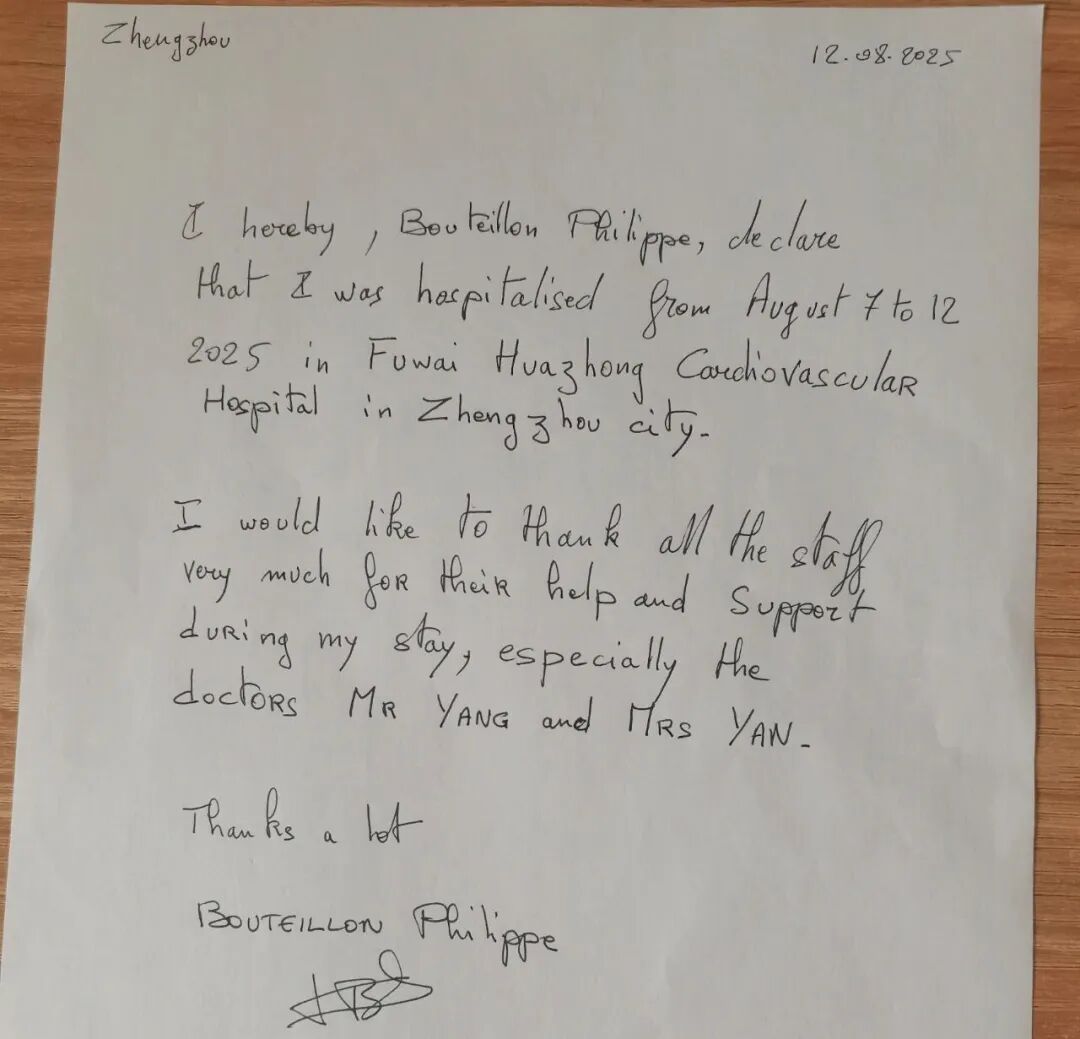 Zhengzhou
12.08.2025
I hereby, Bouteillon Philippe, declare
that I was hospitalised from August 7 to 12
2025 in Fuwai Huazhong Cardiovascular
Hospital in Zhengzhou city.
I would like to thank all the staff
very much for their help and support
during my stay, especially the
doctors MR YANG and MRS YAN.
Thanks a lot
BOUTEILLON Philippe